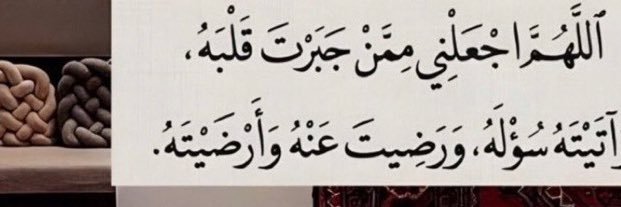 ٱللَّهُمَّ اجْعَلْنِي مِمَّنْ جَبَرْتَ قَلْبَهُ،
آتَيْتَهُ سُؤْلَهُ، وَرَضِيتَ عَنْهُ وَأَرْضَيْتَهُ.